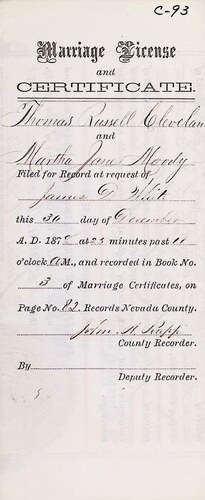 C-93
Marriage License
and
CERTIFICATE.
Thomas Russell Cleveland
and
Martha Jane Moody
Filed for Record at request of
James D. White
this 30 day of December
A. D. 187 at 25 minutes past 11
o'clock A M., and recorded in Book No.
3 of Marriage Certificates, on
Page No. 82. Records Nevada County.
John A. Rapp
County Recorder.
By
Deputy Recorder.